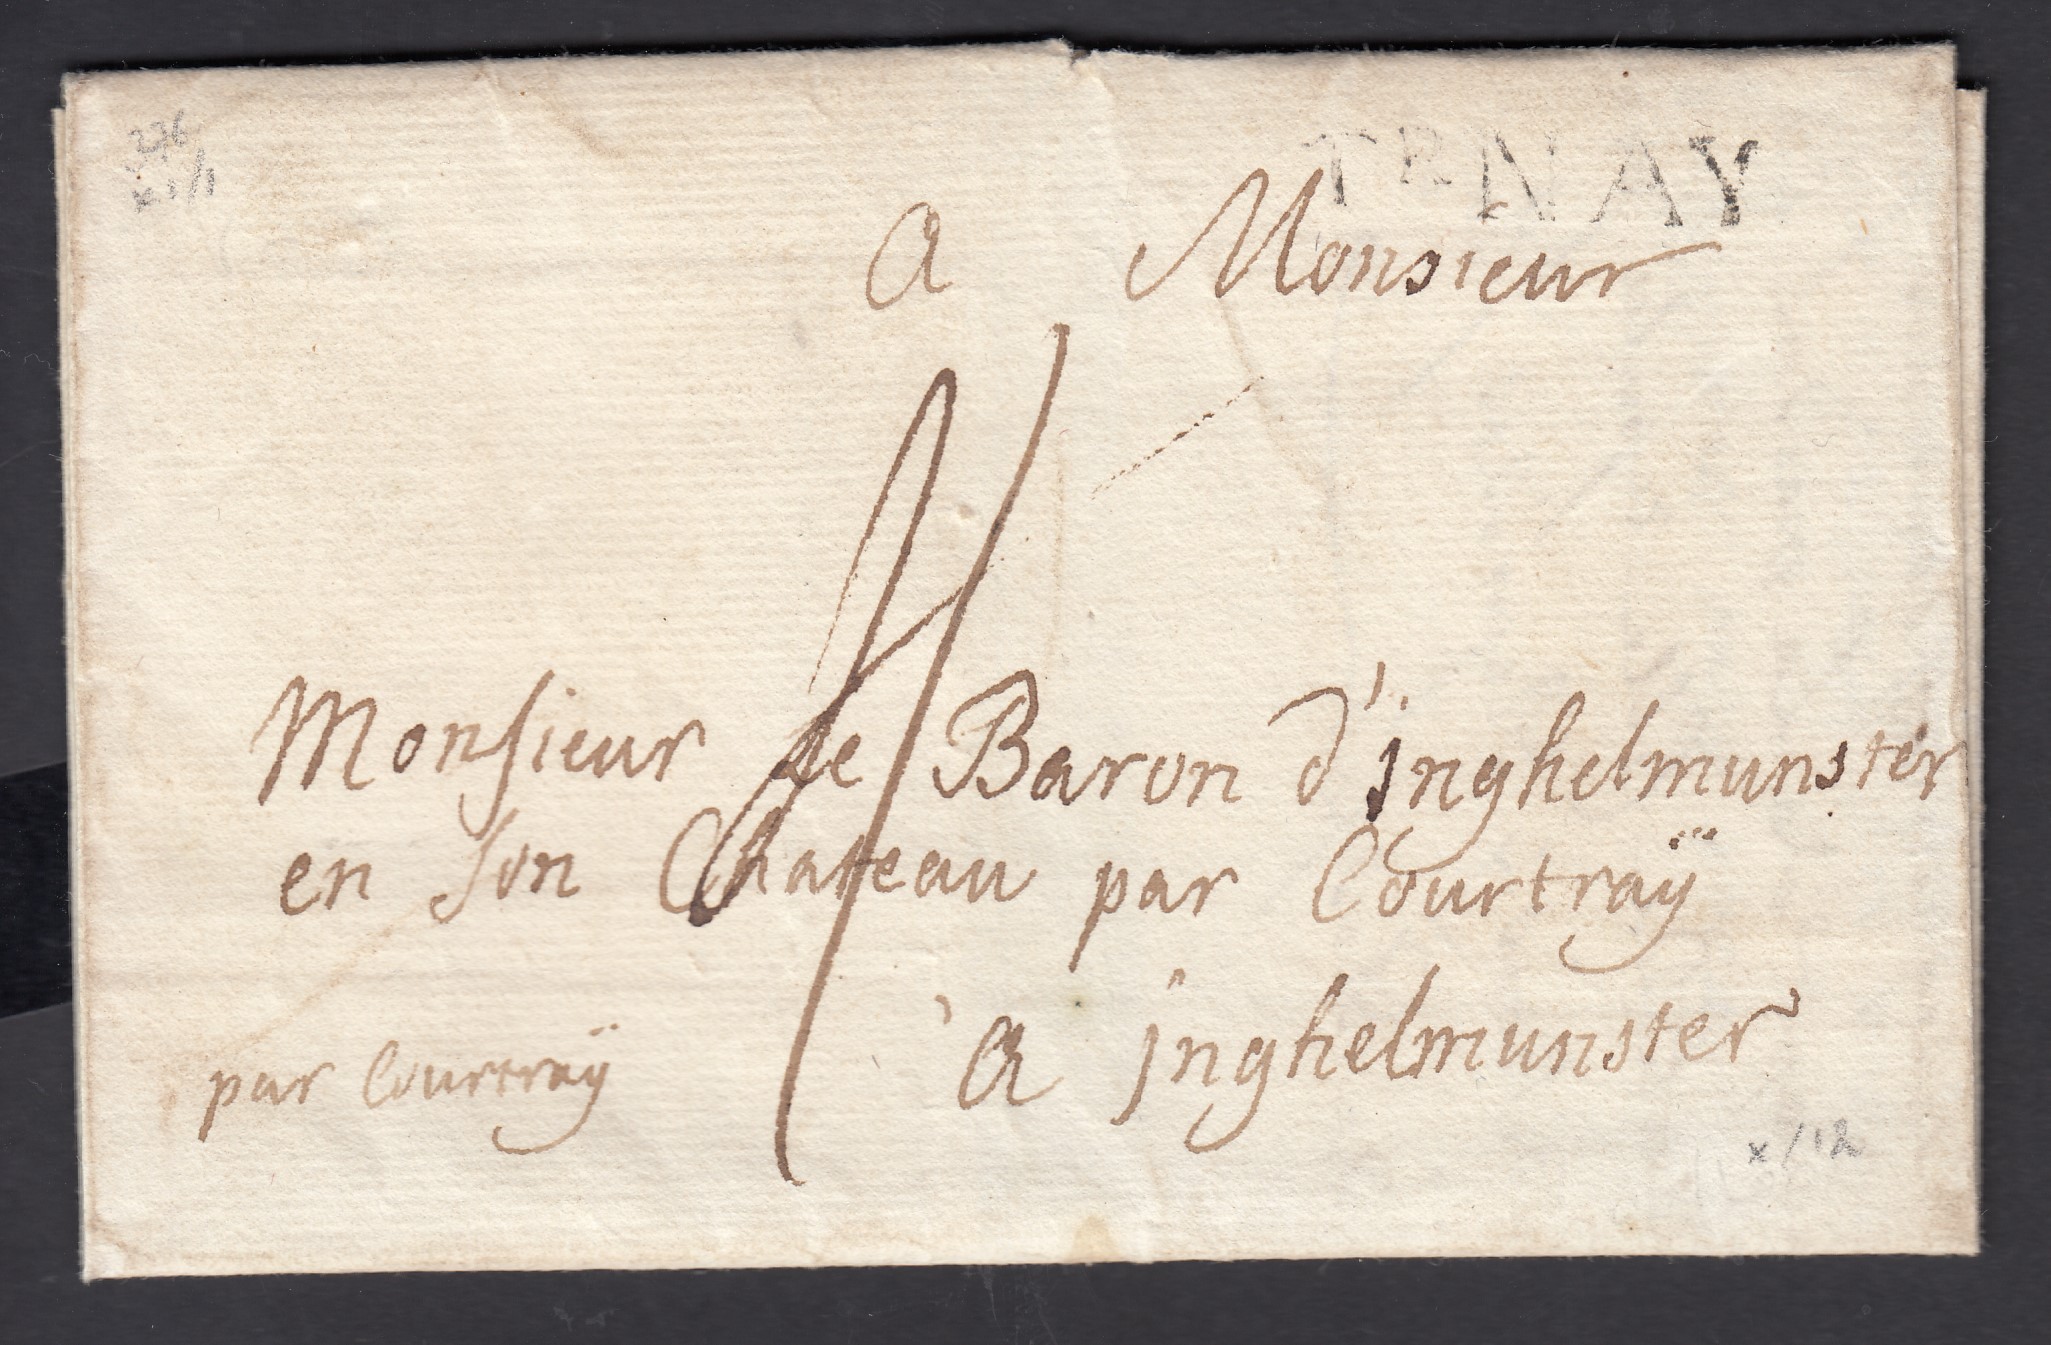 TRNAY
A Monsieur
Monsieur le Baron d'inghelmunster
en son Chateau par Courtraÿ
à inghelmunster
par Courtraÿ
x/12